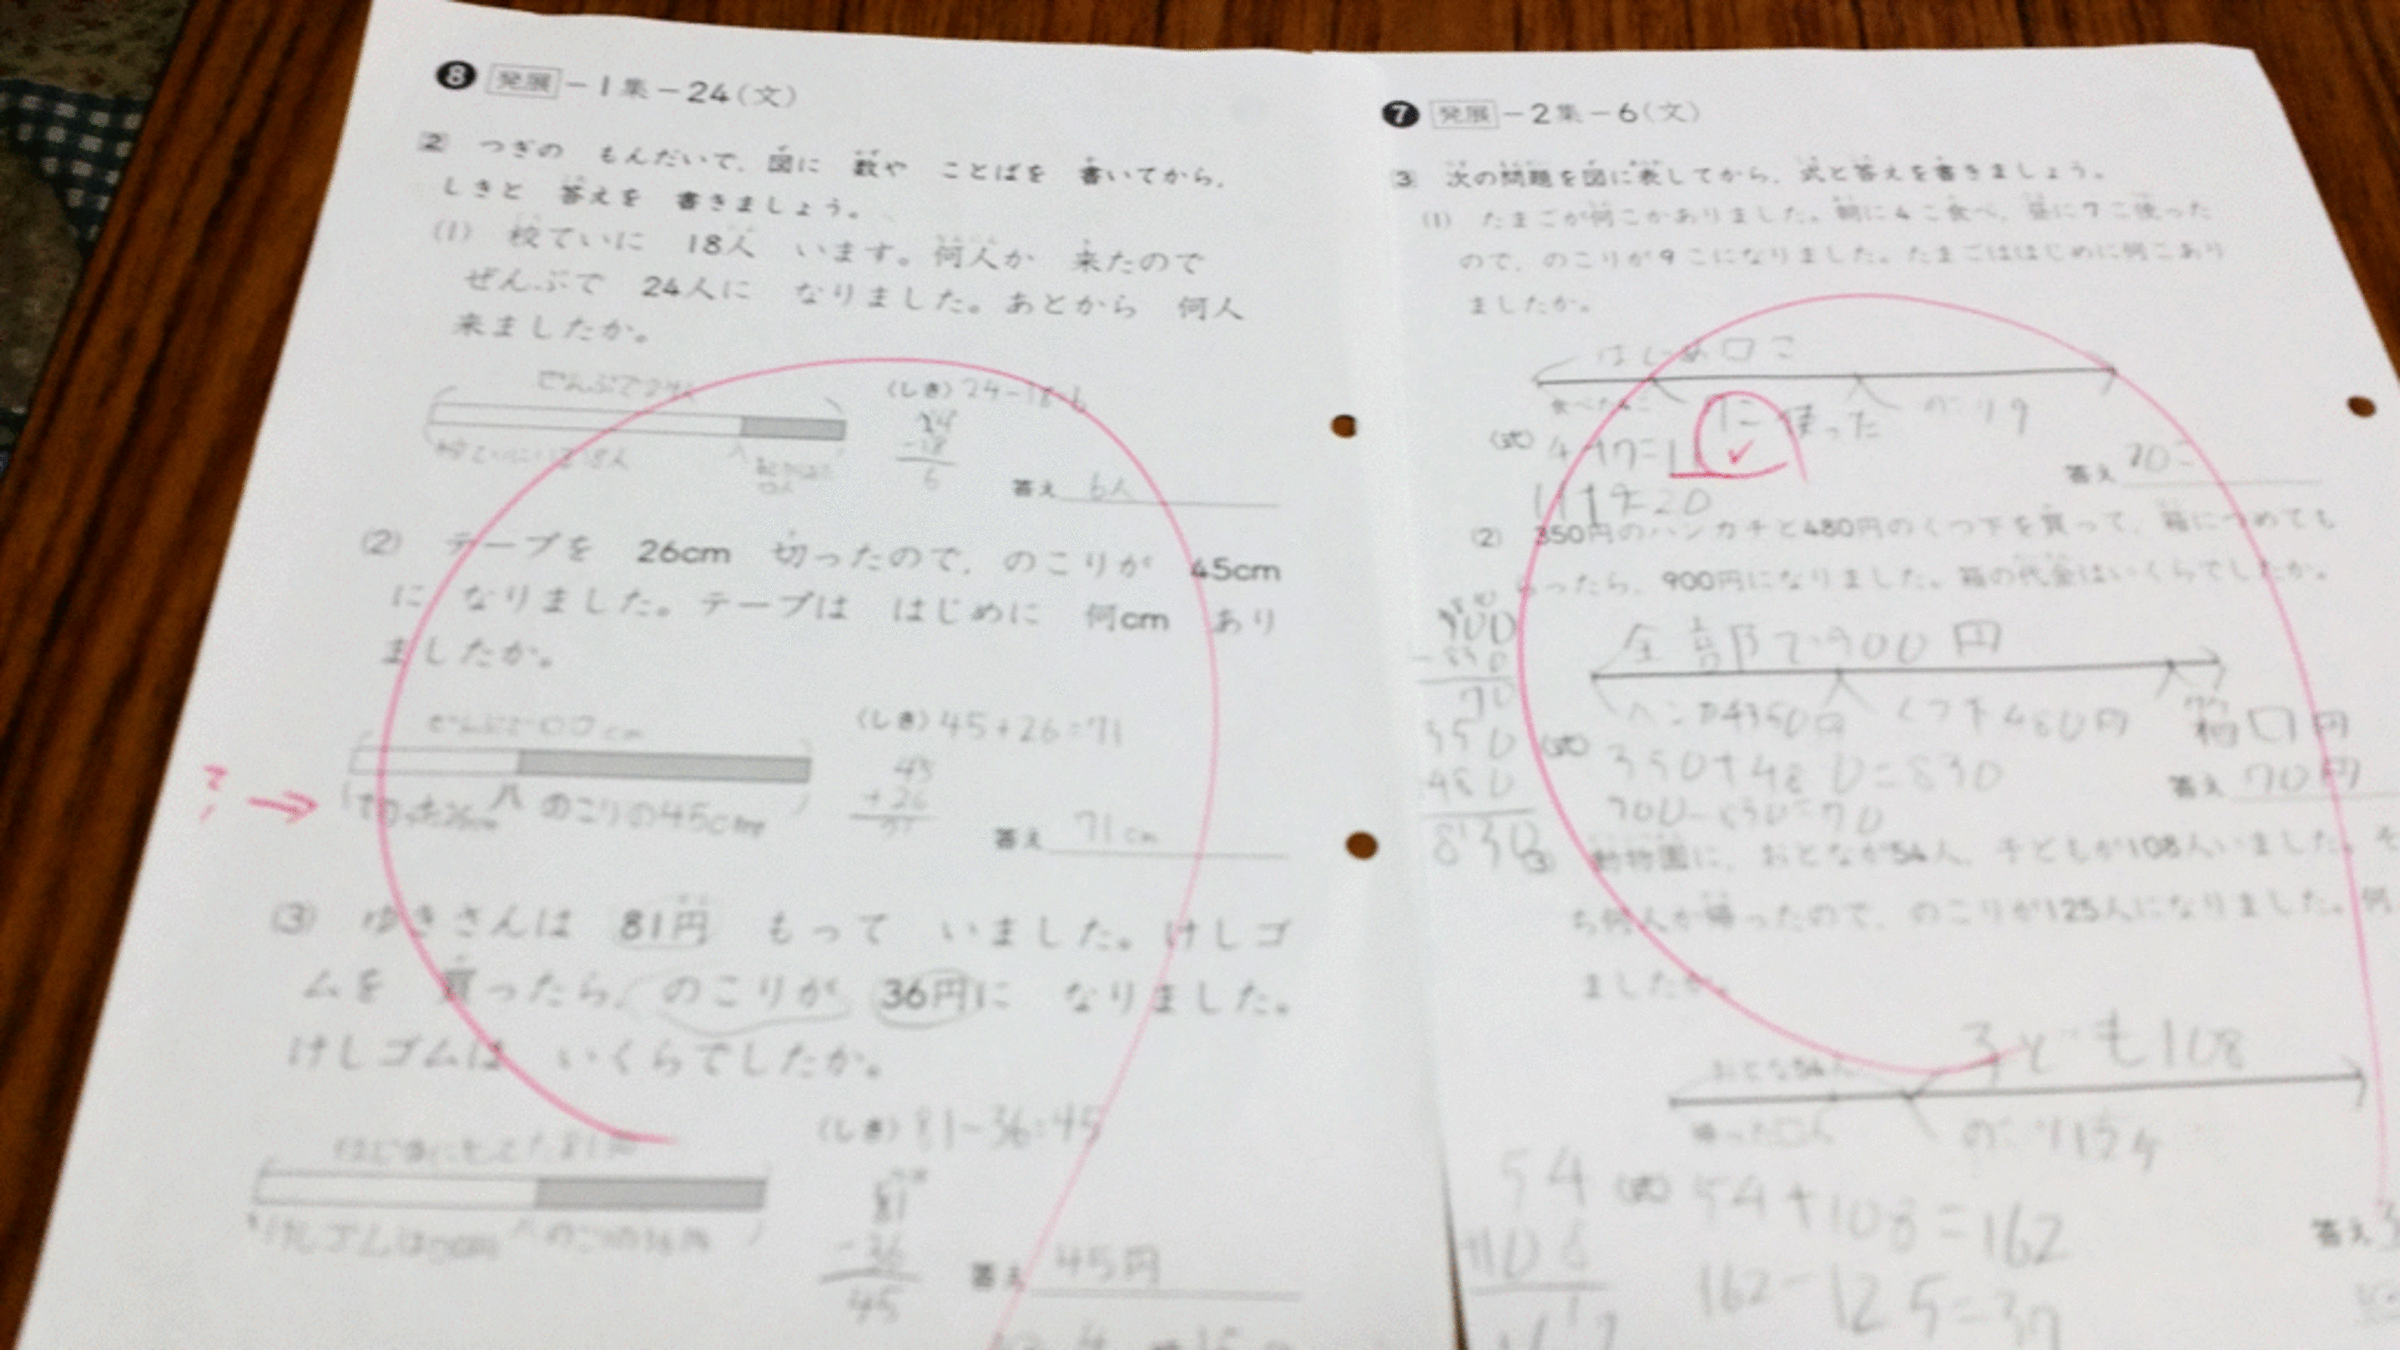 8 発展-1集-24(文)
2 つぎの もんだいで、図に 数や ことばを 書いてから、
しきと 答えを 書きましょう。
(1) 校ていに 18人 います。何人か 来たので
ぜんぶで 24人に なりました。あとから 何人
来ましたか。
ぜんぶで24人
(しき) 24-18=6
24
-18
6
答え 6人
(2) テープを 26cm 切ったので、のこりが 45cm
に なりました。テープは はじめに 何cm あり
ましたか。
ぜんぶで□cm
(しき) 45+26=71
? →
のこりの45cm
45
+26
71
答え 71cm
(3) ゆきさんは 81円 もって いました。けしゴ
ムを 買ったら、のこりが 36円に なりました。
けしゴムは いくらでしたか。
(しき) 81-36=45
けしゴムは□円 のこりの36円
81
-36
45
答え 45円
7 発展-2集-6(文)
3 次の問題を図に表してから、式と答えを書きましょう。
(1) たまごが何こかありました。朝に4こ食べ、昼に7こ使った
ので、のこりが9こになりました。たまごははじめに何こあり
ましたか。
はじめ□こ
使った のこり9
(式) 4+7=11
11+9=20
答え 20こ
(2) 350円のハンカチと480円のくつ下を買って、箱につめても
らったら、900円になりました。箱の代金はいくらでしたか。
全部で900円
ハンカチ350円 くつ下480円 箱□円
900
-830
70
350
480
830
(式) 350+480=830
900-830=70
答え 70円
(3) 動物園に、おとなが54人、子どもが108人いました。そ
ち何人か帰ったので、のこりが125人になりました。何
ましたか。
おとな54人 子ども108
帰った□人
54
(式) 54+108=162
162-125=37
答え 3